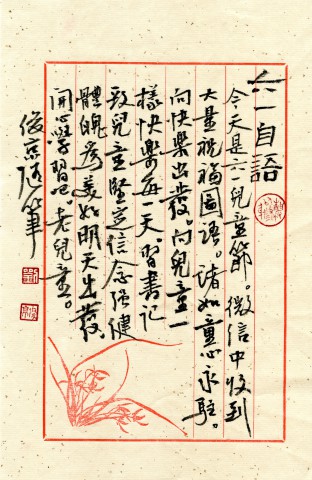 六一自語
今天是六一兒童節。微信中收到
大量祝福圖語。諸如童心永駐。
向快樂出發。向兒童一
樣快樂每一天。習書記
致兒童堅定信念强健
體魄為美好明天出發
開心學習吧。老兒童。
俊京随筆